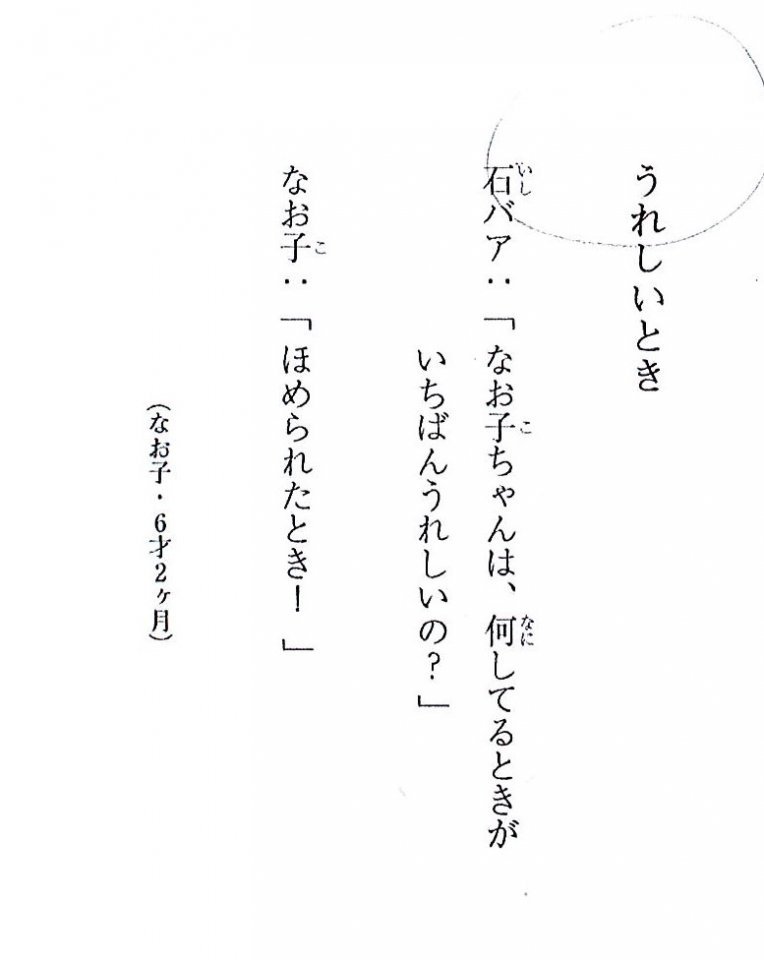 うれしいとき
石バア：「なお子ちゃんは、何してるときが
いちばんうれしいの？」
なお子：「ほめられたとき！」
（なお子・6才2ヶ月）